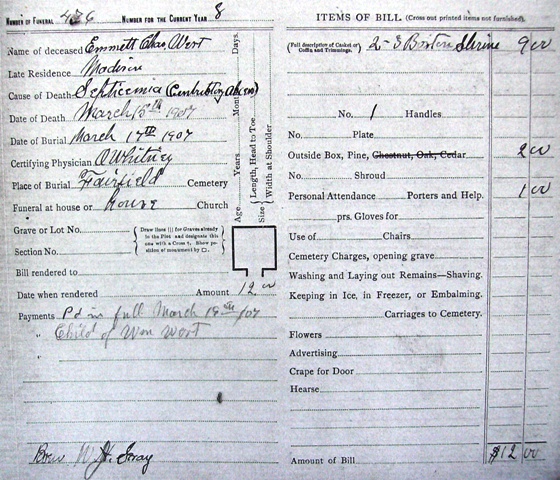 NUMBER OF FUNERAL 476 NUMBER FOR THE CURRENT YEAR 8
Name of deceased Emmett Chas West
Late Residence Madison
Cause of Death Septicemia (Contributing
Date of Death March 15th 1907
Date of Burial March 17th 1907
Certifying Physician O Whitney
Place of Burial Fairfield Cemetery
Funeral at house or house Church
Grave or Lot No.
Section No.
Draw lines ||| for Graves already in the Plot and designate this one with a Cross †. Show position of monument by □.
Bill rendered to
Date when rendered Amount 12.00
Payments Pd in full March 18th/07
" Child of Wm West
"
W. H. Gray
Age Years Months Days.
Size { Length, Head to Toe
Width at Shoulder
ITEMS OF BILL (Cross out printed items not furnished).
(Full description of Casket or Coffin and Trimmings. 2-3 Boston Shrine 9 00
No. 1 Handles
No. Plate
Outside Box, Pine, Chestnut, Oak, Cedar 2 00
No. Shroud
Personal Attendance Porters and Help. 1 00
prs. Gloves for
Use of Chairs.
Cemetery Charges, opening grave.
Washing and Laying out Remains—Shaving.
Keeping in Ice, in Freezer, or Embalming.
Carriages to Cemetery.
Flowers
Advertising
Crape for Door
Hearse
Amount of Bill $12 00